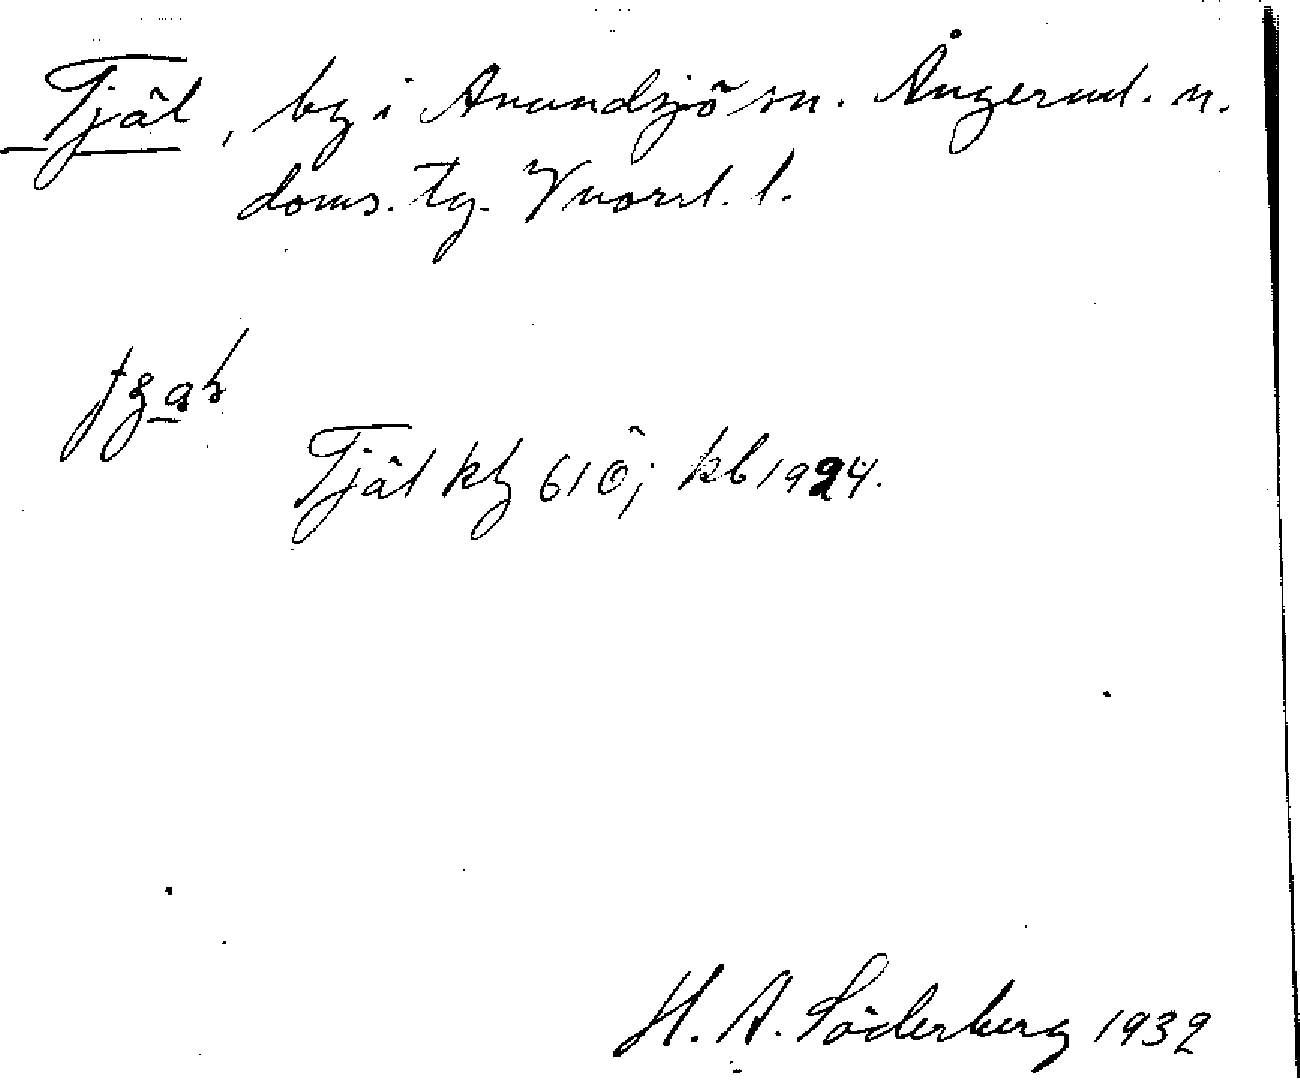 Tjäl, by i Anundsjö sn. Ångerml. n.
doms. tg. Vnorrl. l.
Tjäl kbg 61 Ö; kb 1924.
H. A. Söderberg 1932